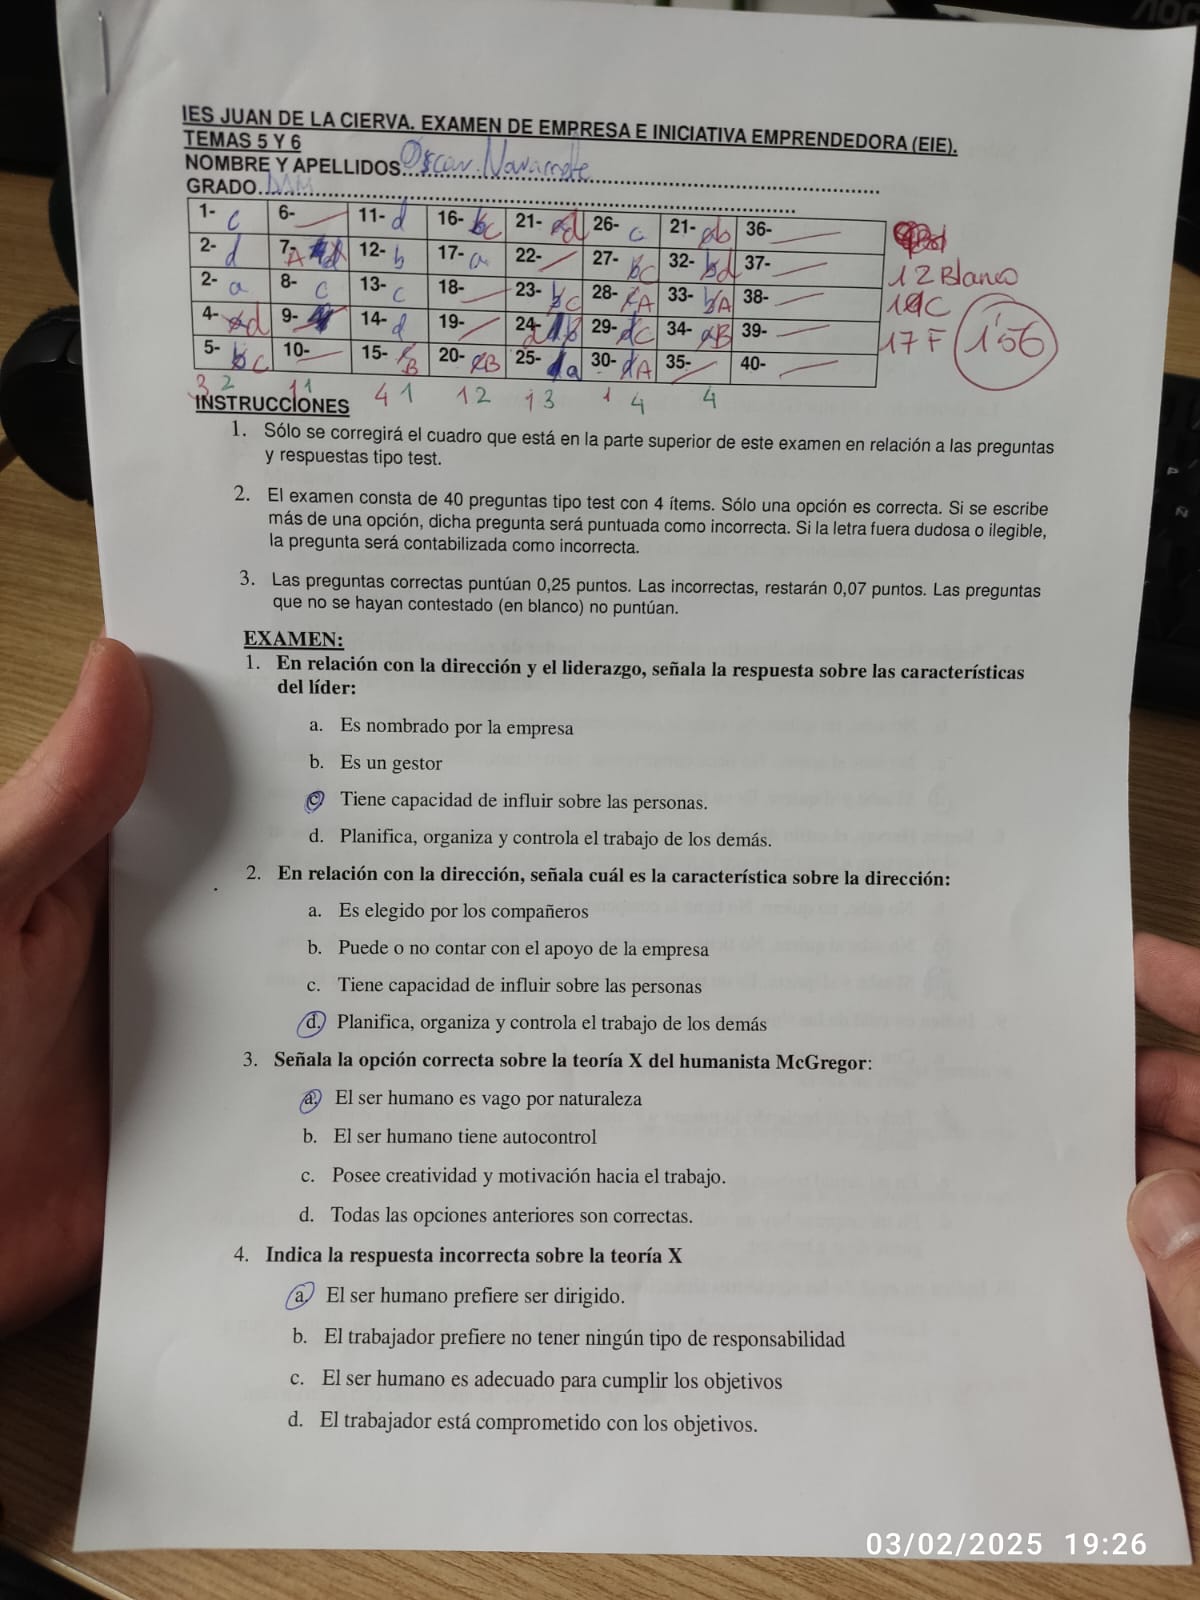 IES JUAN DE LA CIERVA. EXAMEN DE EMPRESA E INICIATIVA EMPRENDEDORA (EIE).
TEMAS 5 Y 6
NOMBRE Y APELLIDOS. Oscar Navarrete
GRADO. DAM
1- c 6- 11- d 16- b c 21- d 26- c 21- b 36-
2- d 7- A 12- b 17- a 22- 27- b C 32- b d 37-
2- a 8- c 13- c 18- 23- b C 28- A 33- b A 38-
4- d 9- 14- d 19- 24- 29- d C 34- B 39-
5- b C 10- 15- B 20- B 25- a 30- d A 35- 40-
12 Blanco
17 F
1'56
3 2 1 1 4 1 1 2 1 3 1 4 4
INSTRUCCIONES
1. Sólo se corregirá el cuadro que está en la parte superior de este examen en relación a las preguntas
y respuestas tipo test.
2. El examen consta de 40 preguntas tipo test con 4 ítems. Sólo una opción es correcta. Si se escribe
más de una opción, dicha pregunta será puntuada como incorrecta. Si la letra fuera dudosa o ilegible,
la pregunta será contabilizada como incorrecta.
3. Las preguntas correctas puntúan 0,25 puntos. Las incorrectas, restarán 0,07 puntos. Las preguntas
que no se hayan contestado (en blanco) no puntúan.
EXAMEN:
1. En relación con la dirección y el liderazgo, señala la respuesta sobre las características
del líder:
a. Es nombrado por la empresa
b. Es un gestor
c. Tiene capacidad de influir sobre las personas.
d. Planifica, organiza y controla el trabajo de los demás.
2. En relación con la dirección, señala cuál es la característica sobre la dirección:
a. Es elegido por los compañeros
b. Puede o no contar con el apoyo de la empresa
c. Tiene capacidad de influir sobre las personas
d. Planifica, organiza y controla el trabajo de los demás
3. Señala la opción correcta sobre la teoría X del humanista McGregor:
a. El ser humano es vago por naturaleza
b. El ser humano tiene autocontrol
c. Posee creatividad y motivación hacia el trabajo.
d. Todas las opciones anteriores son correctas.
4. Indica la respuesta incorrecta sobre la teoría X
a. El ser humano prefiere ser dirigido.
b. El trabajador prefiere no tener ningún tipo de responsabilidad
c. El ser humano es adecuado para cumplir los objetivos
d. El trabajador está comprometido con los objetivos.
03/02/2025 19:26